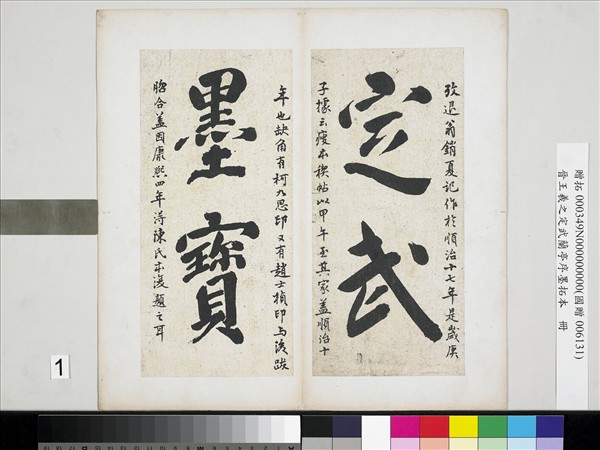 定武
攷退翁銷夏記作於順治十七年是歲庚
子據云瘦本稧帖以甲午至其家蓋順治十
墨寶
年也缺角有柯九思印又有趙士楨印与後跋
脗合蓋因康熙四年得陳氏本後題之耳
贈拓 000349N000000000(國贈 006131)
晉王羲之定武蘭亭序墨拓本 冊
1